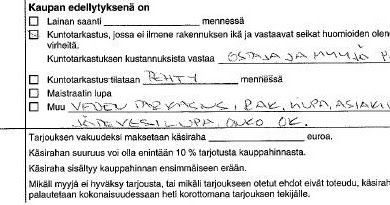 Kaupan edellytyksenä on
Lainan saanti mennessä
Kuntotarkastus, jossa ei ilmene rakennuksen ikä ja vastaavat seikat huomioiden olen
virheitä.
Kuntotarkastuksen kustannuksista vastaa OSTAJA JA MYYJÄ P
Kuntotarkastus tilataan TEHTY mennessä
Maistraatin lupa
Muu VEDEN TARKASTUS, RAK. LUPA, ASIAKI
JÄTEVESILUPA, ONKO OK.
Tarjouksen vakuudeksi maksetaan käsiraha euroa.
Käsirahan suuruus voi olla enintään 10 % tarjotusta kauppahinnasta.
Käsiraha sisältyy kauppahinnan ensimmäiseen erään.
Mikäli myyjä ei hyväksy tarjousta, tai mikäli tarjoukseen otetut ehdot eivät toteudu, käsirah
palautetaan kokonaisuudessaan heti korottomana tarjouksen tekijälle.